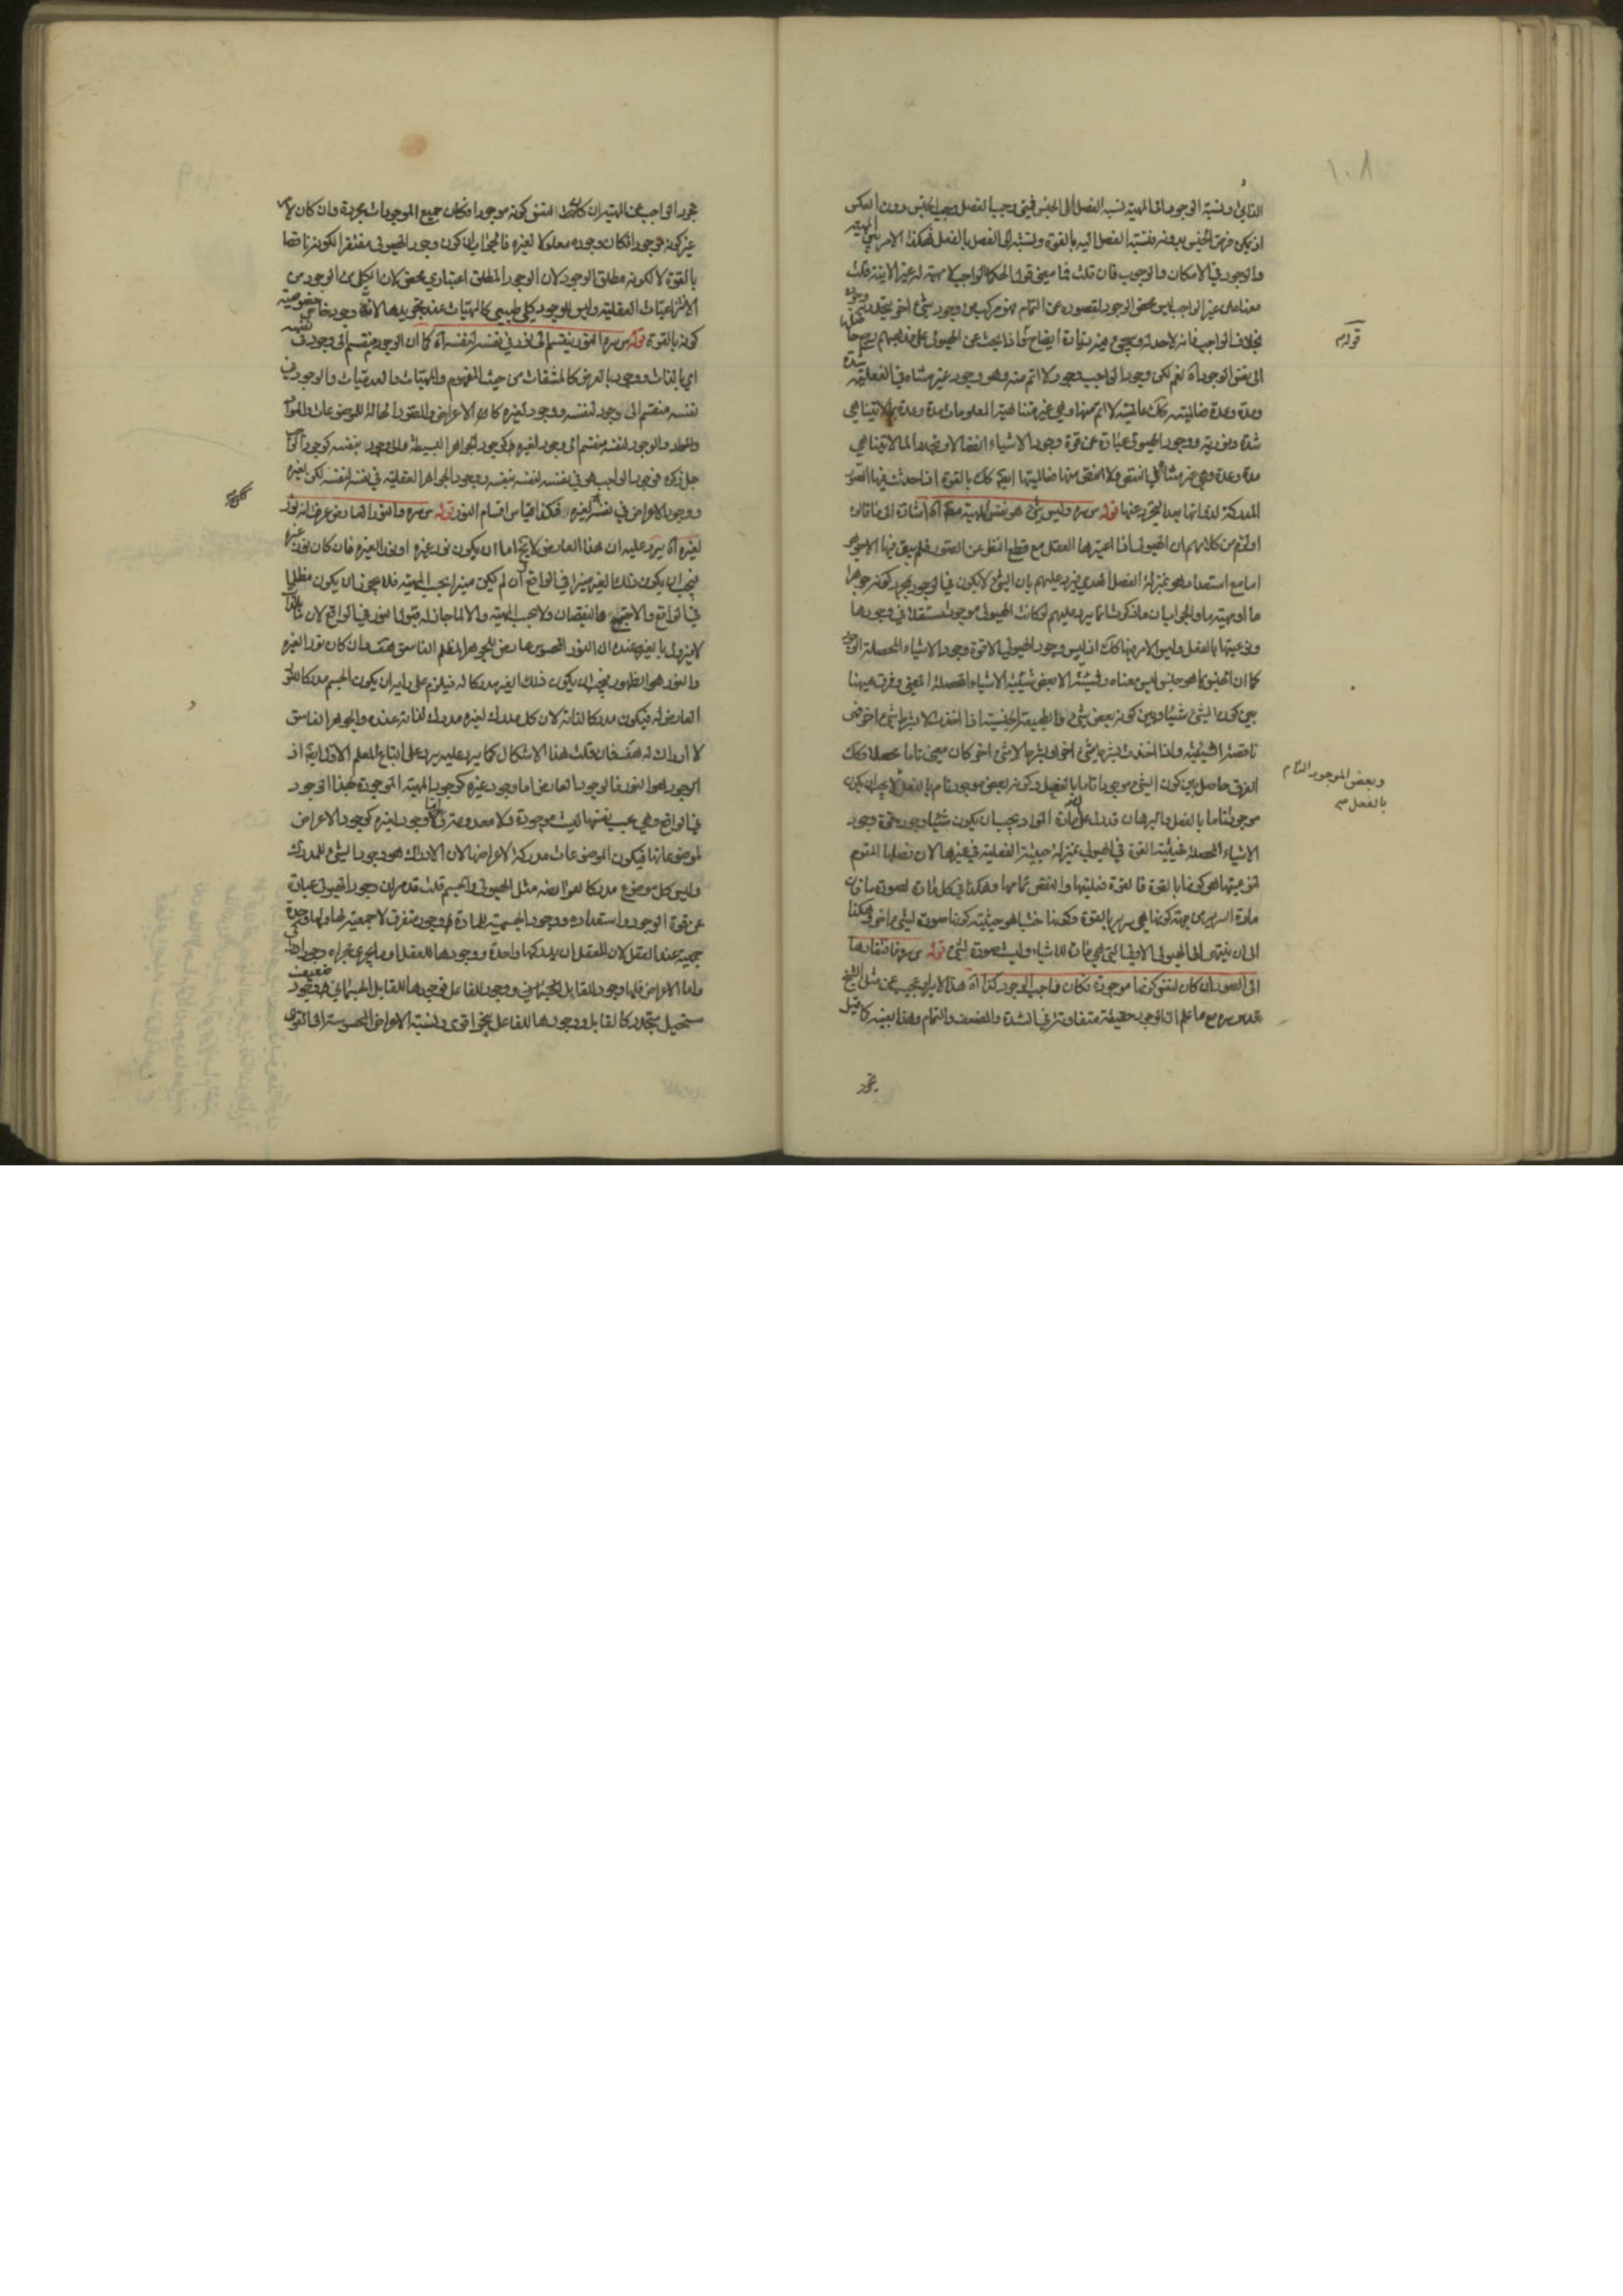 ١٠٨
الذاتي ونسبة الوجود الى المهية نسبة الفصل الى الجنس فيتى وجب الفصل وجب الجنس دون العكس
اذ يمكن فرض الجنس بدونه فنسبته الفصل اليه بالقوة ونسبته الى الفصل بالفعل فهكذا الامر بين المهية
والوجود في الامكان والوجوب فان قلت فما معنى قول الحكماء الواجب لا مهية له غير الانية قلت
معناه ان غير الواجب ليس محض الوجود لقصوره عن التمام فهو مركب من وجود وشيء اخر يتحد به
بخلاف الواجب فانه لاحد له وسيجيء منه زيادة ايضاح فاذا بحث عن الهيولى على مذهبهم رجع حاصلها
الى نفس الوجود اه نعم لكن وجود الواجب وجود لا اتم منه وهو وجود غير متناه في الفعلية شدة
ومدة وعدة فعاليته كذلك عالميته لا اتم منها وهي غير متناهية المعلومات مدة وعدة بما لا يتناهى
شدة ونورية ووجود الهيولى عبارة عن قوة وجود الاشياء
مدة وعدة وهي غير متناهي النقص ولا انقص منها
المدركة لذاتها بعد التجرد عنها قوله س سره وليس شيء هو نفس المهية اه اشارة الى ما قالوه
او لزم من كلامهم ان الهيولى اذا اعتبرها العقل مع قطع النظر عن الصور فلم يبق فيها الا
اما مع استعداد هو بمنزلة الفصل لها فيرد عليهم بان الشيء لا يكون في الوجود مجرد كونه جوهرا
ما او مهية ما والجواب ان ما ذكرت انما يرد عليهم لو كانت الهيولى موجودة مستقلة في وجودها
ونوعيتها بالفعل وليس الامر فيها كذلك اذ ليس وجود الهيولى الا قوة وجود الاشياء المحصلة الوجود
كما ان الجنس بما هو جنس ليس معناه وشيئيته الا بعض شيئية الاشياء المحصلة المعنى وفرق هيهنا
بين كون الشيء شيئا وبين كونه بعض شيء والطبيعة الجنسية اذا اخذت لا بشرط شيء اخر فهي
ناقصة الشيئية واذا اخذت بشرط شيء اخر او بشرط لا شيء اخر كان معنى تاما محصلا وكذلك
الفرق حاصل بين كون الشيء موجودا تاما بالفعل وكونه بعض موجود تام بالفعل لا يجب ان يكون
موجودا تاما بالفعل والبرهان قد دل على ان مادة المواد يجب ان يكون شيئا وجوده قوة وجود
الاشياء المحصلة فحيثية القوة في الهيولى بمنزلة حيثية الفعلية في غيرها لان فصلها المقوم
لنوعيتها هو كونها بالقوة فالقوة فعليتها والنقص تمامها وهكذا في كل مادة لصورة ما فان
مادة السرير من جهة كونها هي سرير بالقوة وكونها خشبا هو حيثية كونها صورة لشيء اخر وهكذا
الى ان ينتهي الى الهيولى الاولى التي هي مادة للاشياء وليست صورة لشيء قوله س سره فافتقارها
الى الصور ان كان لنفس كونها موجودة فكان واجب الوجود كذا اه هذا الايراد عجيب عن مثل الشيخ
قدس سره مع ما علم ان الوجود حقيقة متفاوتة في الشدة والضعف والتمام وهذا بعينه كما قيل
تجرد
قولهم
وبعض الموجود التام
بالفعل صح
تجرد الواجب عن المهية ان كانت لنفس كونه موجودا فكان جميع الموجودات مجردة وان كان لامر
غير كونه موجودا فكان وجوده معلولا لغيره فالجواب ان كون وجود الهيولى مفتقرا لكونه ناقصا
بالقوة لا لكونه مطلق الوجود لان الوجود المطلق اعتباري محض لان الكلي من الوجود من
الانتزاعيات العقلية وليس للوجود كلي طبيعي كالمهيات عند تجريدها لانه وجود خاص خصوصيته
كونه بالقوة قوله س سره النور ينقسم الى نور في نفسه لنفسه اه كما ان الوجود ينقسم الى وجود في نفسه
اي بالذات ووجود بالعرض كالمشتقات من حيث المفهوم والمهيات والعدميات والوجود في
نفسه منقسم الى وجود لنفسه ووجود لغيره كالاعراض والصور الحالة للموضوعات والمواد
والوجود لنفسه منقسم الى وجود لغيره كوجود الجواهر البسيطة والى وجود بنفسه كوجود الواجب
جل ذكره فوجود الواجب هو في نفسه لنفسه بنفسه ووجود الجواهر العقلية في نفسه لنفسه لكن بغيره
ووجود الاعراض في نفسه لغيره فكذا قياس اقسام النور قوله س سره والنور العارض عرفت انه نور
لغيره اه يرد عليه ان هذا العارض لا يخ اما ان يكون نور غيره او نورا لغيره فان كان نور غيره
فيجب ان يكون ذلك الغير منيرا في الواقع ان لم يكن منيرا بحسب المهية فلا يجوز ان يكون مظلما
لا يزول بالغير وعنده ان النور المحسوس عارض للجوهر المظلم الغاسق هف وان كان نورا لغيره
والنور هو الظهور فيجب ان يكون ذلك الغير مدركا له فيلزم على رايه ان يكون الجسم مدركا للنور
العارض له فيكون مدركا لذاته لان كل مدرك لغيره مدرك لذاته عنده والجوهر الغاسق
لا ادراك له هف فان قلت هذا الاشكال كما يرد عليه يرد على اتباع المعلم الاول ايضا اذ
الوجود هو النور فالوجود العارض اما وجود غيره كوجود المهية الموجودة بهذا الوجود
في الواقع وهي بحسب نفسها ليست موجودة ولا معدومة واما وجود لغيره كوجود الاعراض
لموضوعاتها فيكون الموضوعات مدركة لاعراضها لان الادراك هو وجود الشيء للمدرك
وليس كل موضوع مدركا لعوارضه مثل الهيولى والجسم قلت قد مر ان وجود الهيولى عبارة
عن قوة الوجود واستعداده ووجود الجسمية للمادة وجود متفرق لا جمعية لها ولها وحدة
جمعية عند العقل لان للعقل ان يدركها واحدة ووجودها للعقل وما يجري مجراه وجود ادراكي
واما الاعراض فلها وجود للقابل الجسماني ووجود للفاعل فوجودها للقابل الجسماني وجود ضعيف
مستحيل متجدد كالقابل ووجودها للفاعل بنحو اقوى ونسبة الاعراض المحسوسة الى القوى